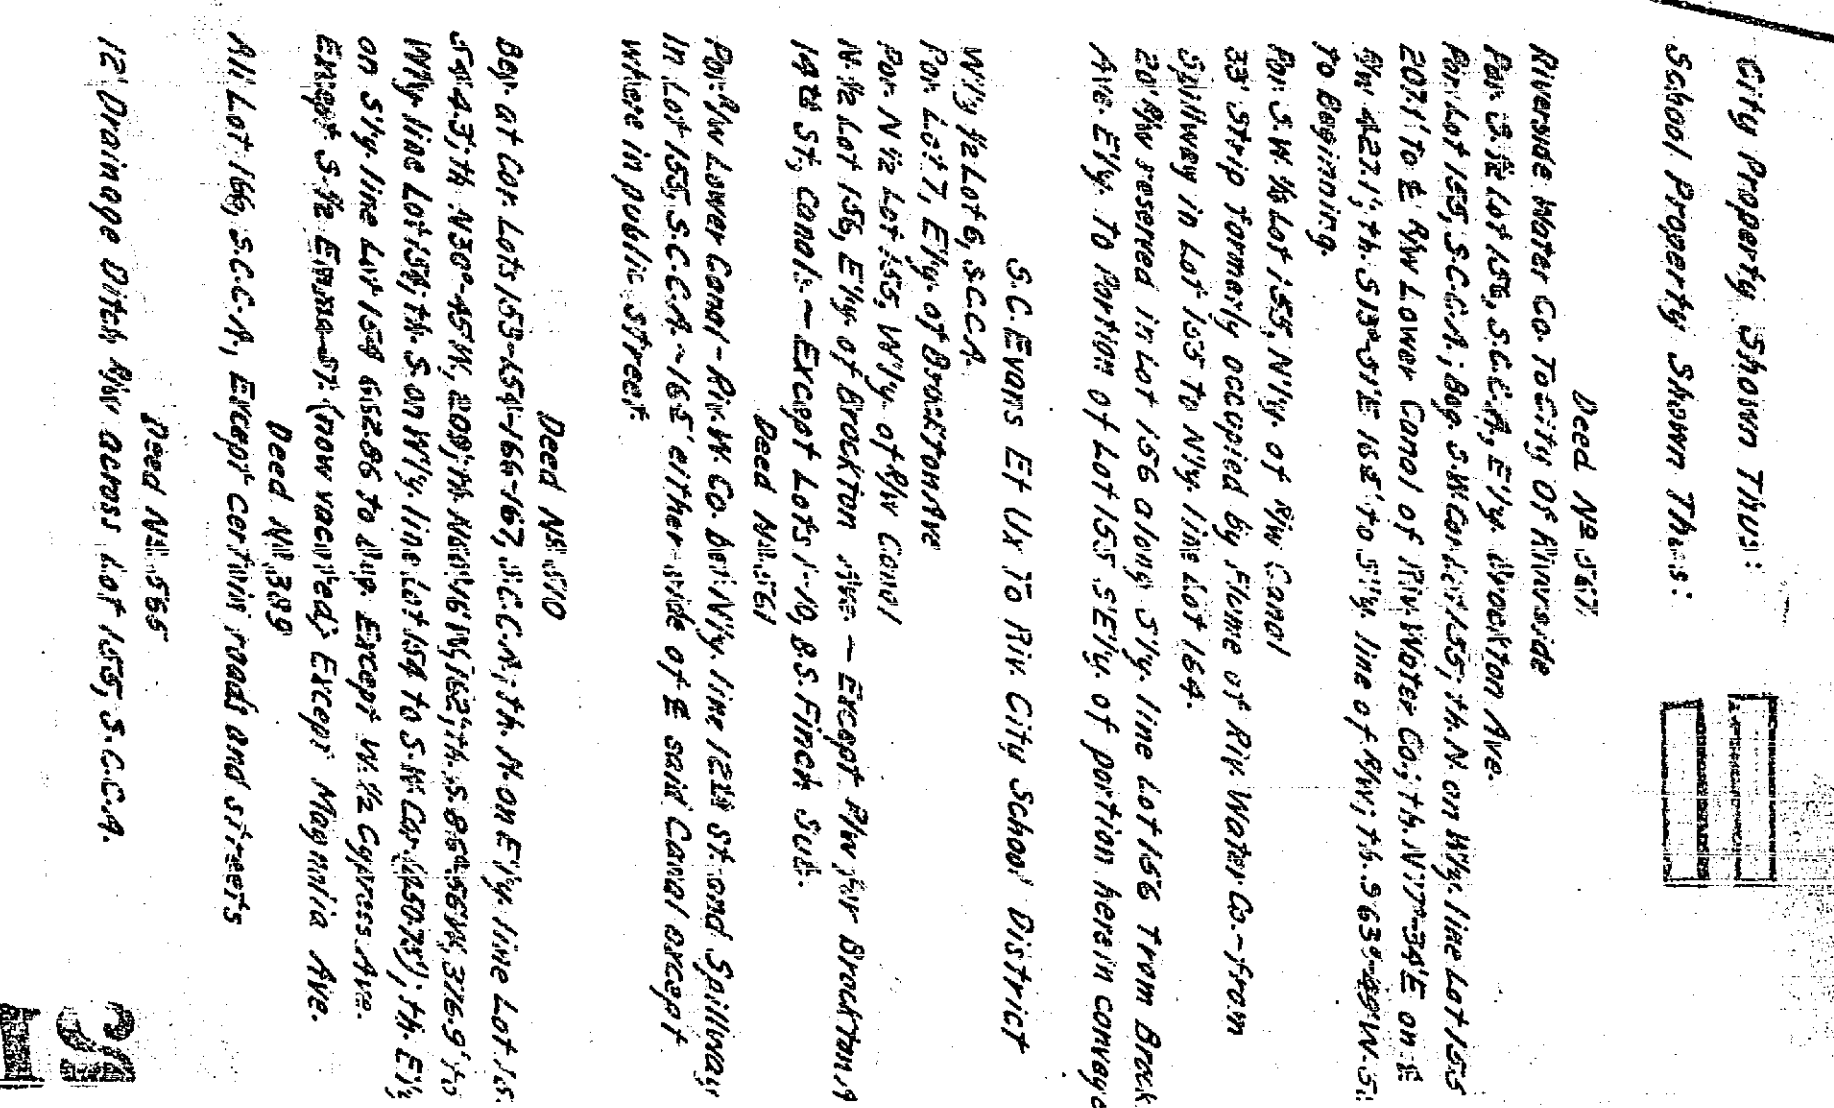 City Property Shown Thus:
School Property Shown Thus:
Deed Nº 567
Riverside Water Co. To City Of Riverside
Por. S ½ Lot 156, S.C.C.A., E'ly. Brockton Ave.
Por. Lot 155, S.C.C.A.; Beg. S.W. Cor. Lot 155; th. N. on W'ly. line Lot 155
207.1' to ₵ R/W Lower Canal of Riv. Water Co.; th. N17°-34'E on ₵
R/W 427.1'; th. S13°-51'E 165' to S'ly. line of R/W; th. S63°-49'W.
to Beginning.
Por. S.W. ¼ Lot 155, N'ly. of R/W Canal
33' Strip formerly occupied by Flume of Riv. Water Co. - from
Spillway in Lot 155 to N'ly. line Lot 164.
20' R/W reserved in Lot 156 along S'ly. line Lot 156 from Brock.
Ave. E'ly. to Portion of Lot 155 SE'ly. of portion herein conveye
S.C. Evans Et Ux To Riv. City School District
W'ly ½ Lot 6, S.C.C.A.
Por. Lot 7, E'ly. of Brockton Ave
Por. N ½ Lot 155, W'ly. of R/W Canal
N. ½ Lot 156, E'ly of Brockton Ave. - Except R/W for Brockton,
14th St., Canal. - Except Lots 1-10, B.S. Finch Sub.
Deed Nº 561
Por. R/W Lower Canal - Riv. W. Co. bet. N'ly. line 12th St. and Spillway
In Lot 155, S.C.C.A. - 16.5' either side of ₵ said Canal except
where in public street.
Deed Nº 510
Beg. at Cor. Lots 153-154-166-167, S.C.C.A.; th. N. on E'ly. line Lot
544.3'; th. N30°-45'W, 209'; th. 162'; th. S.86°-56'W, 376.9' to
W'ly. line Lot 154; th. S. on W'ly. line Lot 154 to S.W. Cor. (450.75'); th. E'ly
on S'ly. line Lot 154 652.86 to Beg. Except W. ½ Cypress Ave.
Except S. ½ Emma St. (now vacated); Except Magnolia Ave.
Deed Nº 389
All Lot 166, S.C.C.A., Except certain roads and streets
Deed Nº 565
12' Drainage Ditch R/W across Lot 155, S.C.C.A.